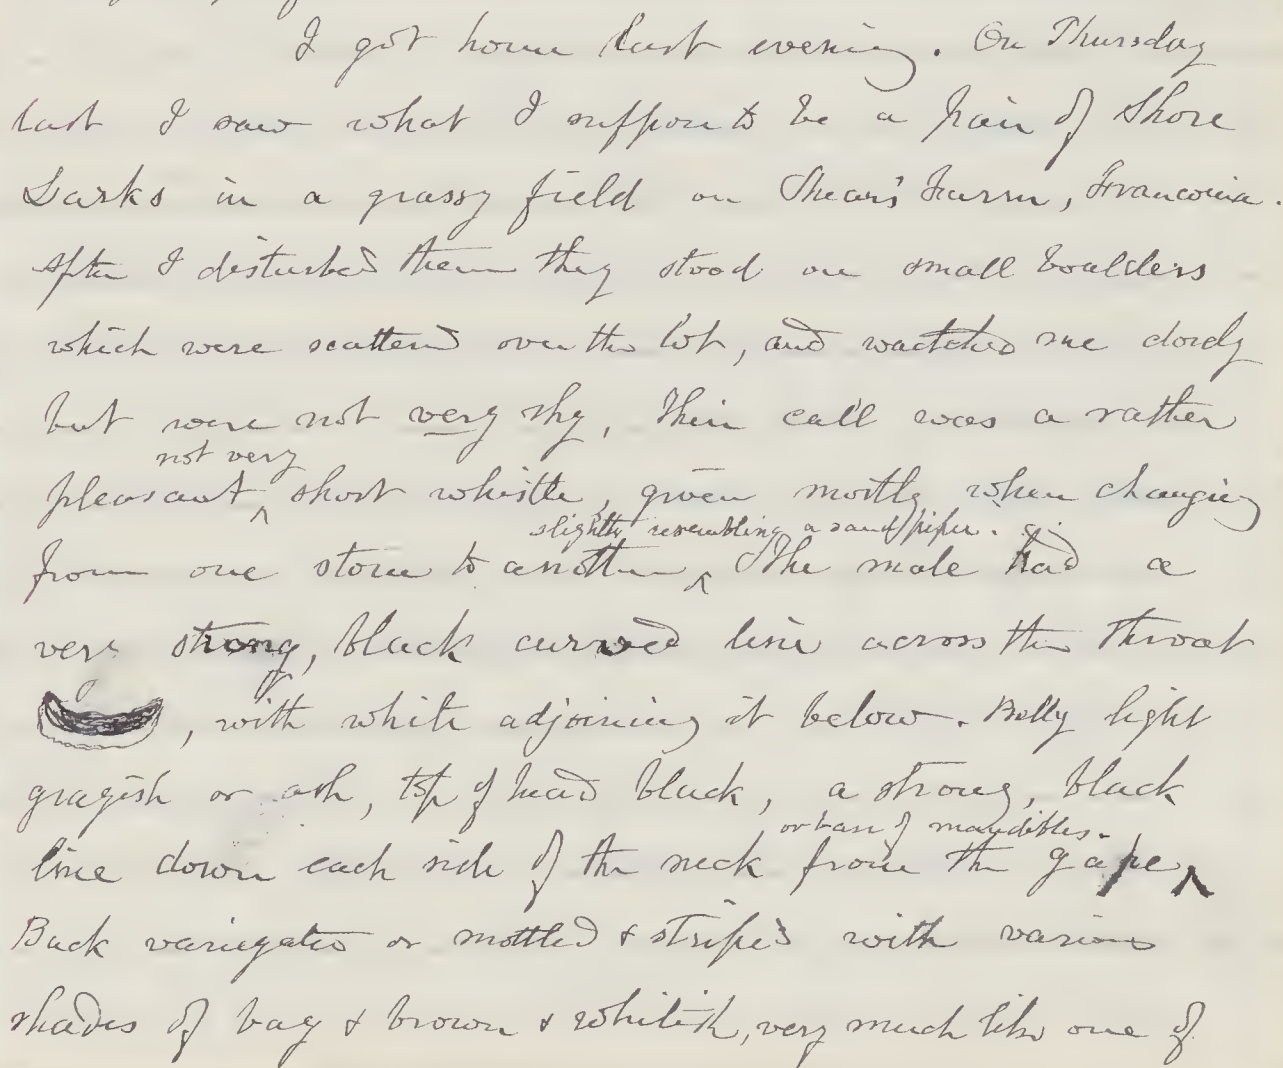 I got home last evening. On Thursday
last I saw what I suppose to be a pair of Shore
Larks in a grassy field on Farm, Franconia.
After I disturbed them they stood on small boulders
which were scattered over the lot, and wactched me closely
but were not very shy, Their call was a rather
not very
pleasant ^ short whistle, given mostly when changing
slightly resembling a sand piper.
from one stone to another ^ The male had a
very strong, black curved line across the throat
, with white adjoining it below. Belly light
grayish or ash, top of head black, a strong, black
or base of mandibles.
line down each side of the neck from the gape ^
Back variegated or mottled & striped with various
shades of bay & brown & whitish, very much like one of